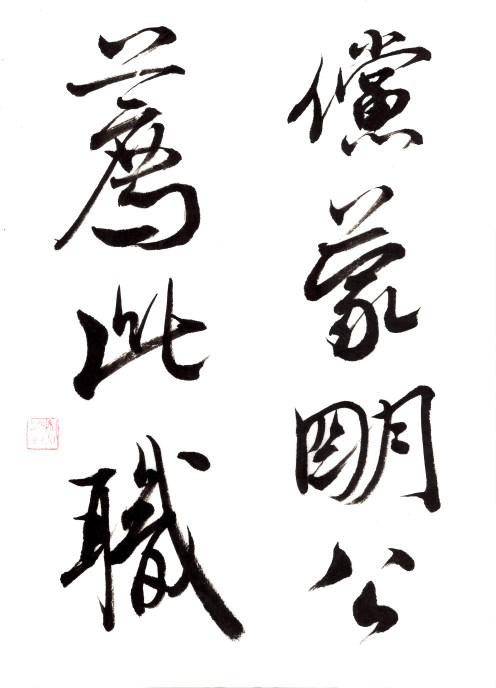 儻蒙明公
薦此職